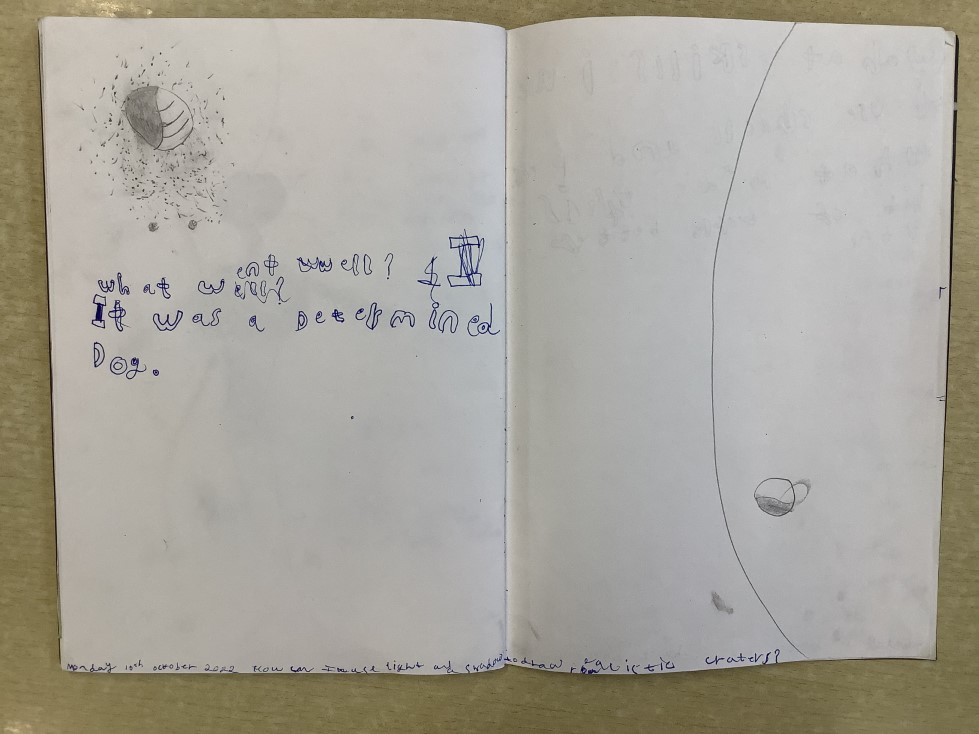 ent wwell?
what well?
It was a Determined
Dog.
Monday 10th october 2022 How can I use light and a shadow to draw realistic craters?